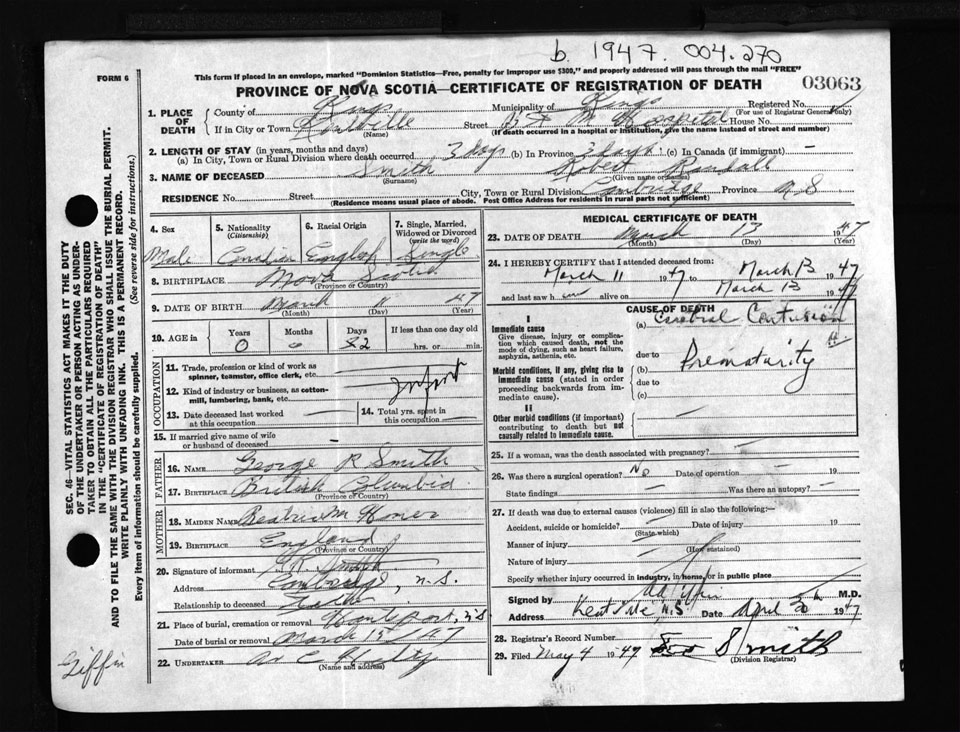 b. 1947. 004.270
FORM 6
This form if placed in an envelope, marked "Dominion Statistics—Free, penalty for improper use $300," and properly addressed will pass through the mail "FREE"
PROVINCE OF NOVA SCOTIA—CERTIFICATE OF REGISTRATION OF DEATH
03063
1. PLACE OF DEATH County of Kings Municipality of Kings Registered No. (For use of Registrar General only)
If in City or Town (Name) Street Hospital House No.
(If death occurred in a hospital or institution, give the name instead of street and number)
2. LENGTH OF STAY (in years, months and days)
(a) In City, Town or Rural Division where death occurred 3 days (b) In Province 3 days (c) In Canada (if immigrant) —
3. NAME OF DECEASED Smith Robert Randall
(Surname) (Given name or names)
RESIDENCE No. Street City, Town or Rural Division Cambridge Province N.S
(Residence means usual place of abode. Post Office Address for residents in rural parts not sufficient)
4. Sex Male
5. Nationality (Citizenship) Canadian
6. Racial Origin English
7. Single, Married, Widowed or Divorced (write the word) Single
8. BIRTHPLACE Nova Scotia
(Province or Country)
9. DATE OF BIRTH March 11 1947
(Month) (Day) (Year)
10. AGE in Years Months Days If less than one day old
0 0 2 hrs. or min.
OCCUPATION
11. Trade, profession or kind of work as spinner, teamster, office clerk, etc.
12. Kind of industry or business, as cotton-mill, lumbering, bank, etc. Infant
13. Date deceased last worked at this occupation —
14. Total yrs. spent in this occupation
15. If married give name of wife or husband of deceased —
FATHER
16. NAME George R Smith
17. BIRTHPLACE British Columbia
(Province or Country)
MOTHER
18. MAIDEN NAME
19. BIRTHPLACE England
(Province or Country)
20. Signature of informant Smith
Address Cambridge, N.S.
Relationship to deceased Father
21. Place of burial, cremation or removal Hantsport, N.S
Date of burial or removal March 15/47
22. UNDERTAKER
(Name and address)
MEDICAL CERTIFICATE OF DEATH
23. DATE OF DEATH March 13 1947
(Month) (Day) (Year)
24. I HEREBY CERTIFY that I attended deceased from:
March 11 1947 to March 13 1947
and last saw him alive on March 13 1947
CAUSE OF DEATH
I
Immediate cause
Give disease, injury or complication which caused death, not the mode of dying, such as heart failure, asphyxia, asthenia, etc.
(a) Cerebral Contusion
due to
Morbid conditions, if any, giving rise to immediate cause (stated in order proceeding backwards from immediate cause).
(b) Prematurity
due to
(c)
II
Other morbid conditions (if important) contributing to death but not causally related to immediate cause.
25. If a woman, was the death associated with pregnancy? —
26. Was there a surgical operation? No Date of operation — 19
State findings — Was there an autopsy? —
27. If death was due to external causes (violence) fill in also the following:
Accident, suicide or homicide? Date of injury 19
(State which)
Manner of injury
(How sustained)
Nature of injury
Specify whether injury occurred in industry, in home, or in public place
Signed by M.D.
Address Kentville, N.S Date April 1947
28. Registrar's Record Number
29. Filed May 4 1947 Smith
(Division Registrar)
SEC. 46—VITAL STATISTICS ACT MAKES IT THE DUTY
OF THE UNDERTAKER OR PERSON ACTING AS UNDER-
TAKER TO OBTAIN ALL THE PARTICULARS REQUIRED
IN THE "CERTIFICATE OF REGISTRATION OF DEATH"
AND TO FILE THE SAME WITH THE DIVISION REGISTRAR WHO SHALL ISSUE THE BURIAL PERMIT.
WRITE PLAINLY WITH UNFADING INK. THIS IS A PERMANENT RECORD.
Every item of information should be carefully supplied. (See reverse side for instructions.)
Giffin